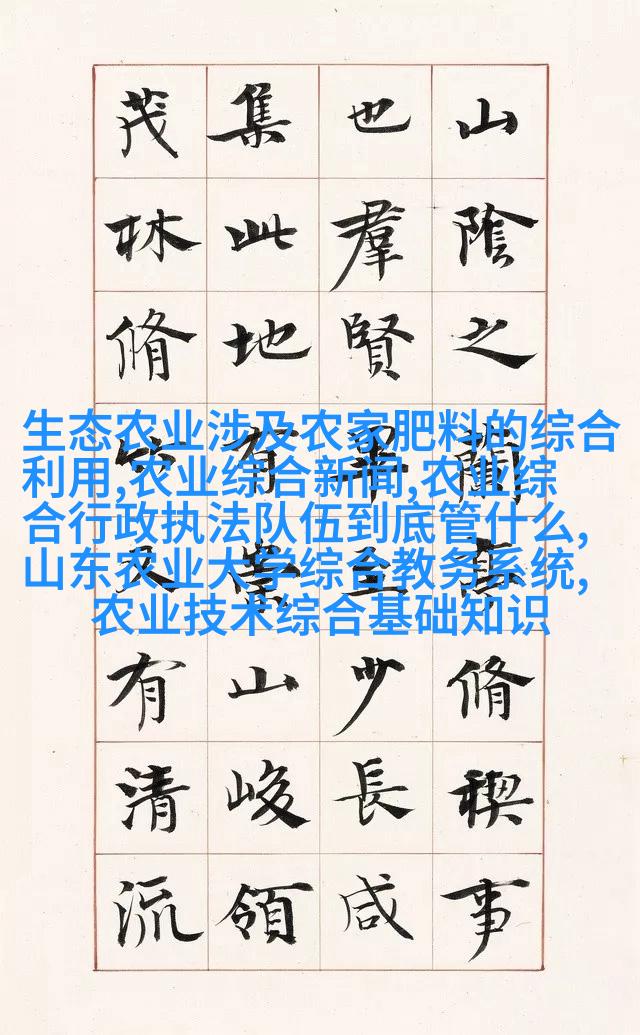 山陰之蘭亭脩稧事
也羣賢畢至少長咸
集此地有崇山峻領
茂林脩竹又有清流
生态农业涉及农家肥料的综合
利用,农业综合新闻,农业综
合行政执法队伍到底管什么,
山东农业大学综合教务系统,
农业技术综合基础知识